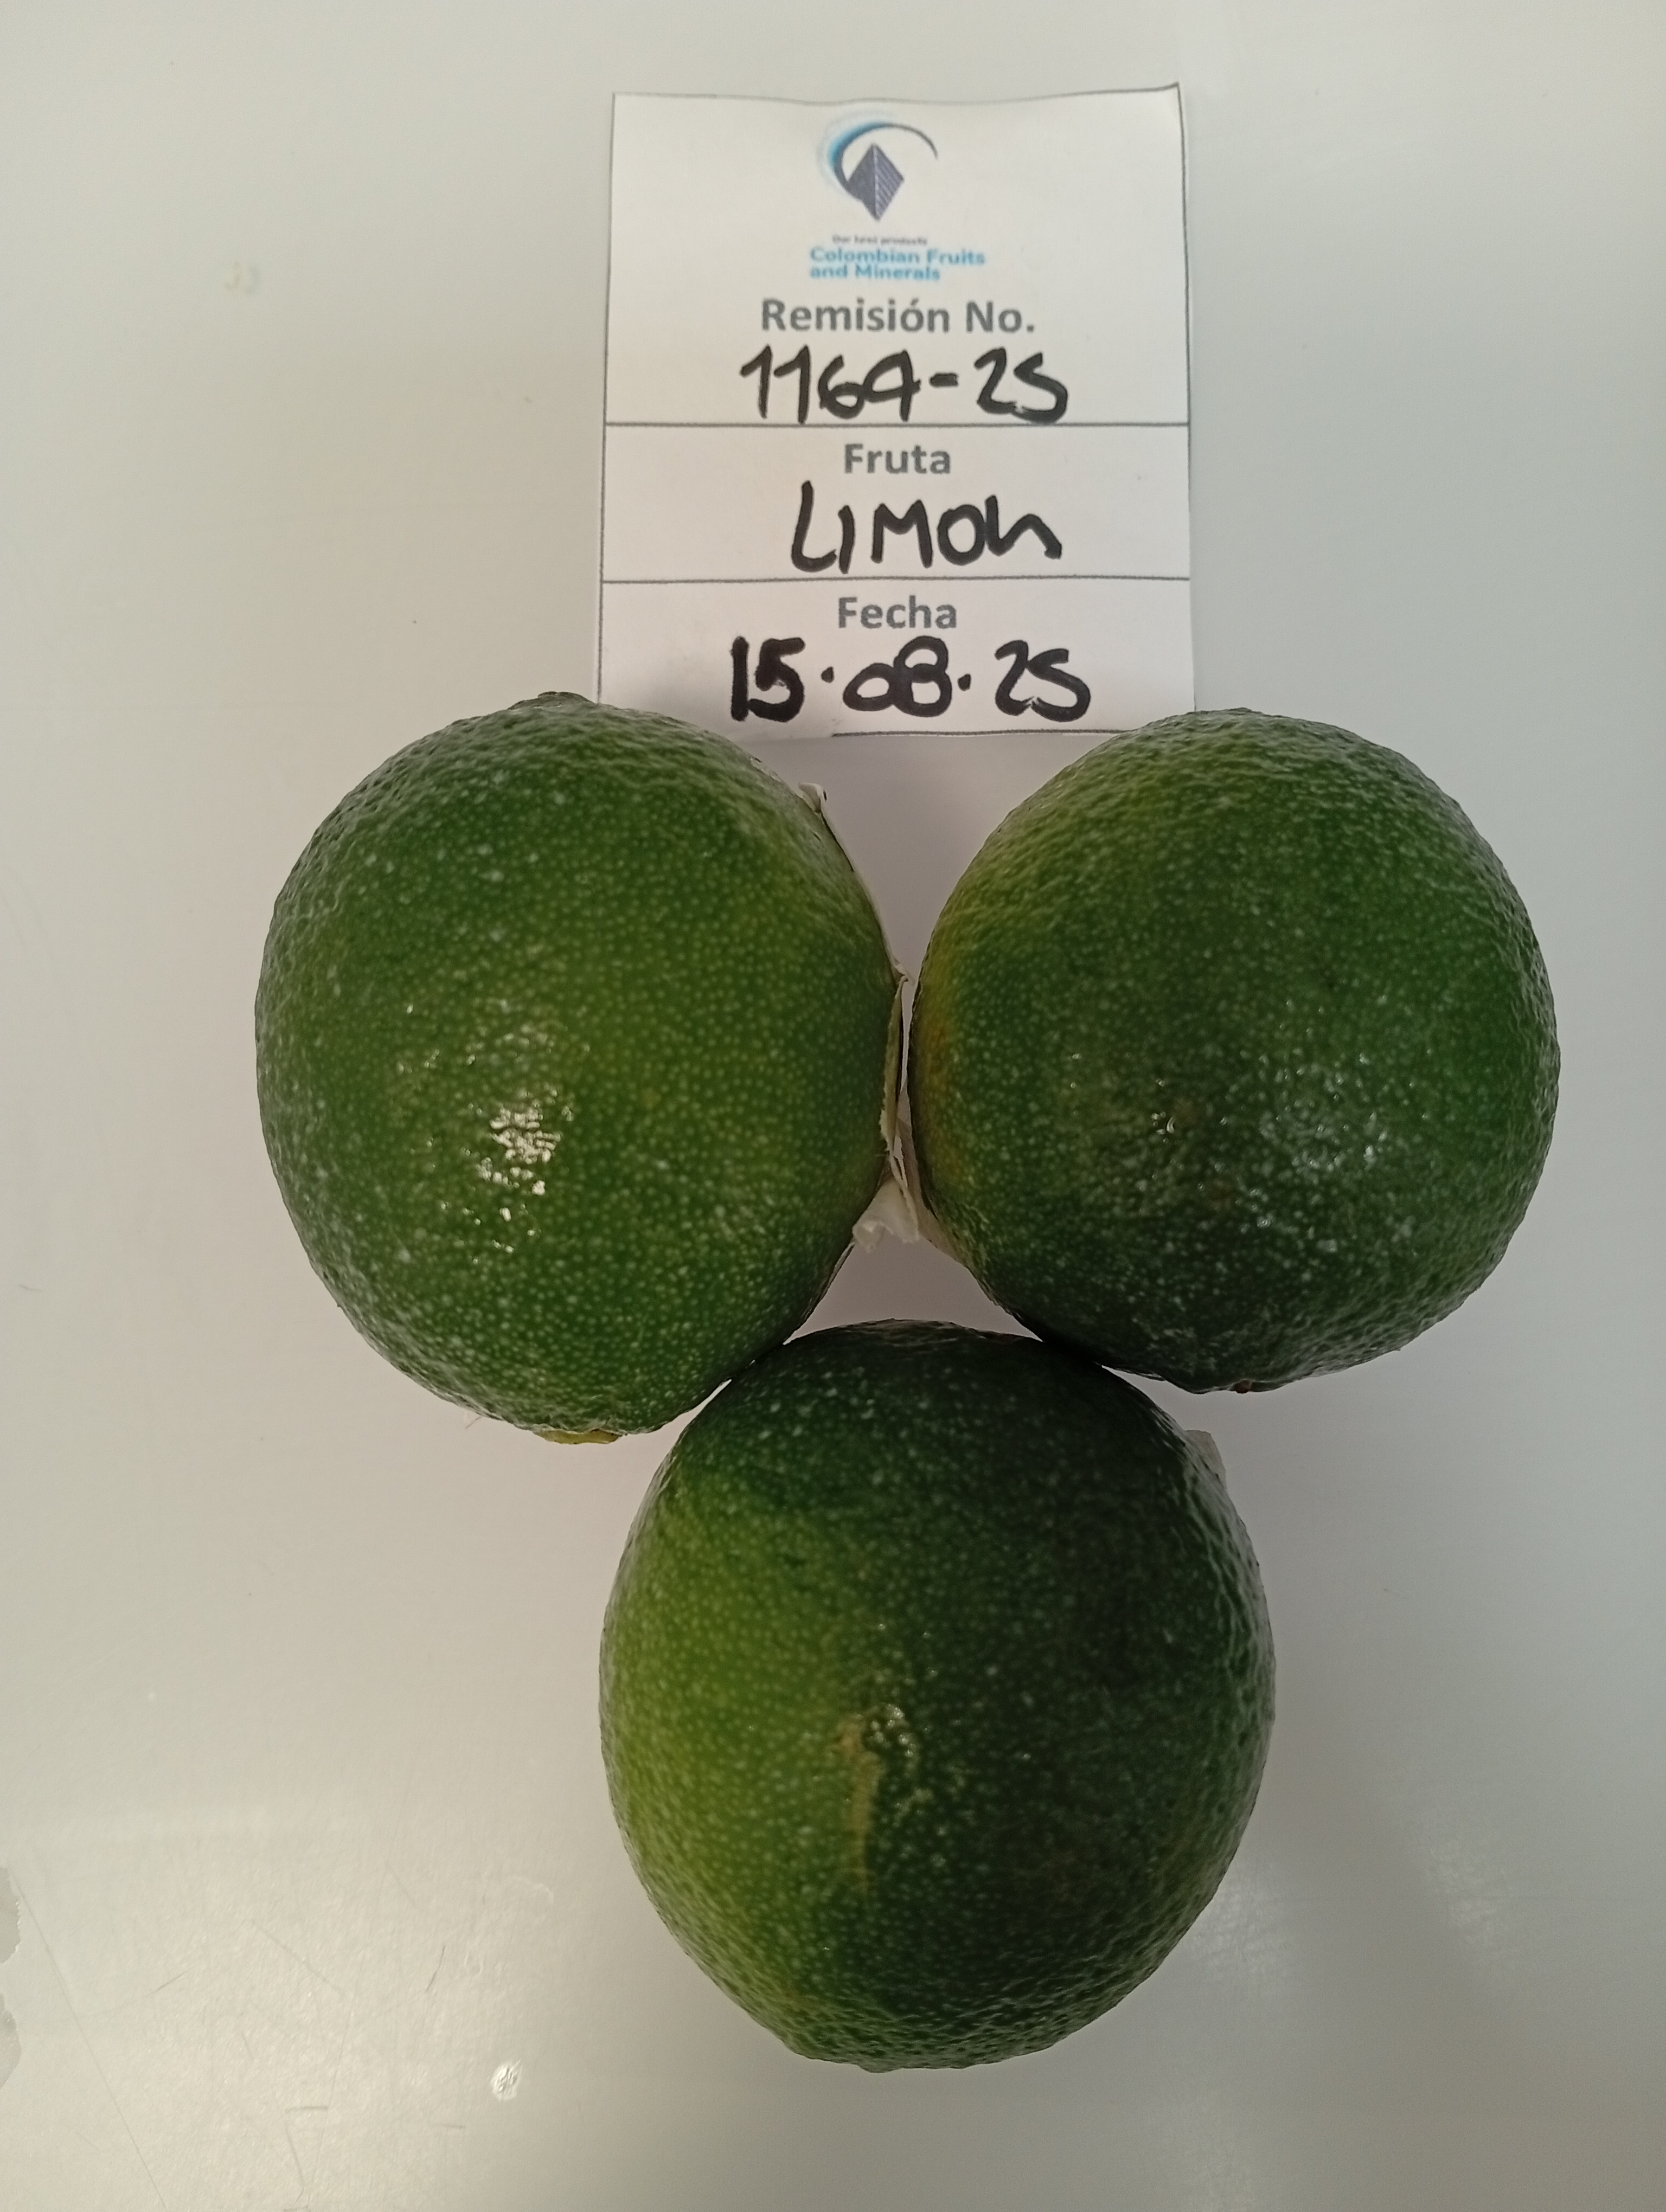 Our best products
Colombian Fruits
and Minerals
Remisión No.
1164-25
Fruta
LIMON
Fecha
15.08.25